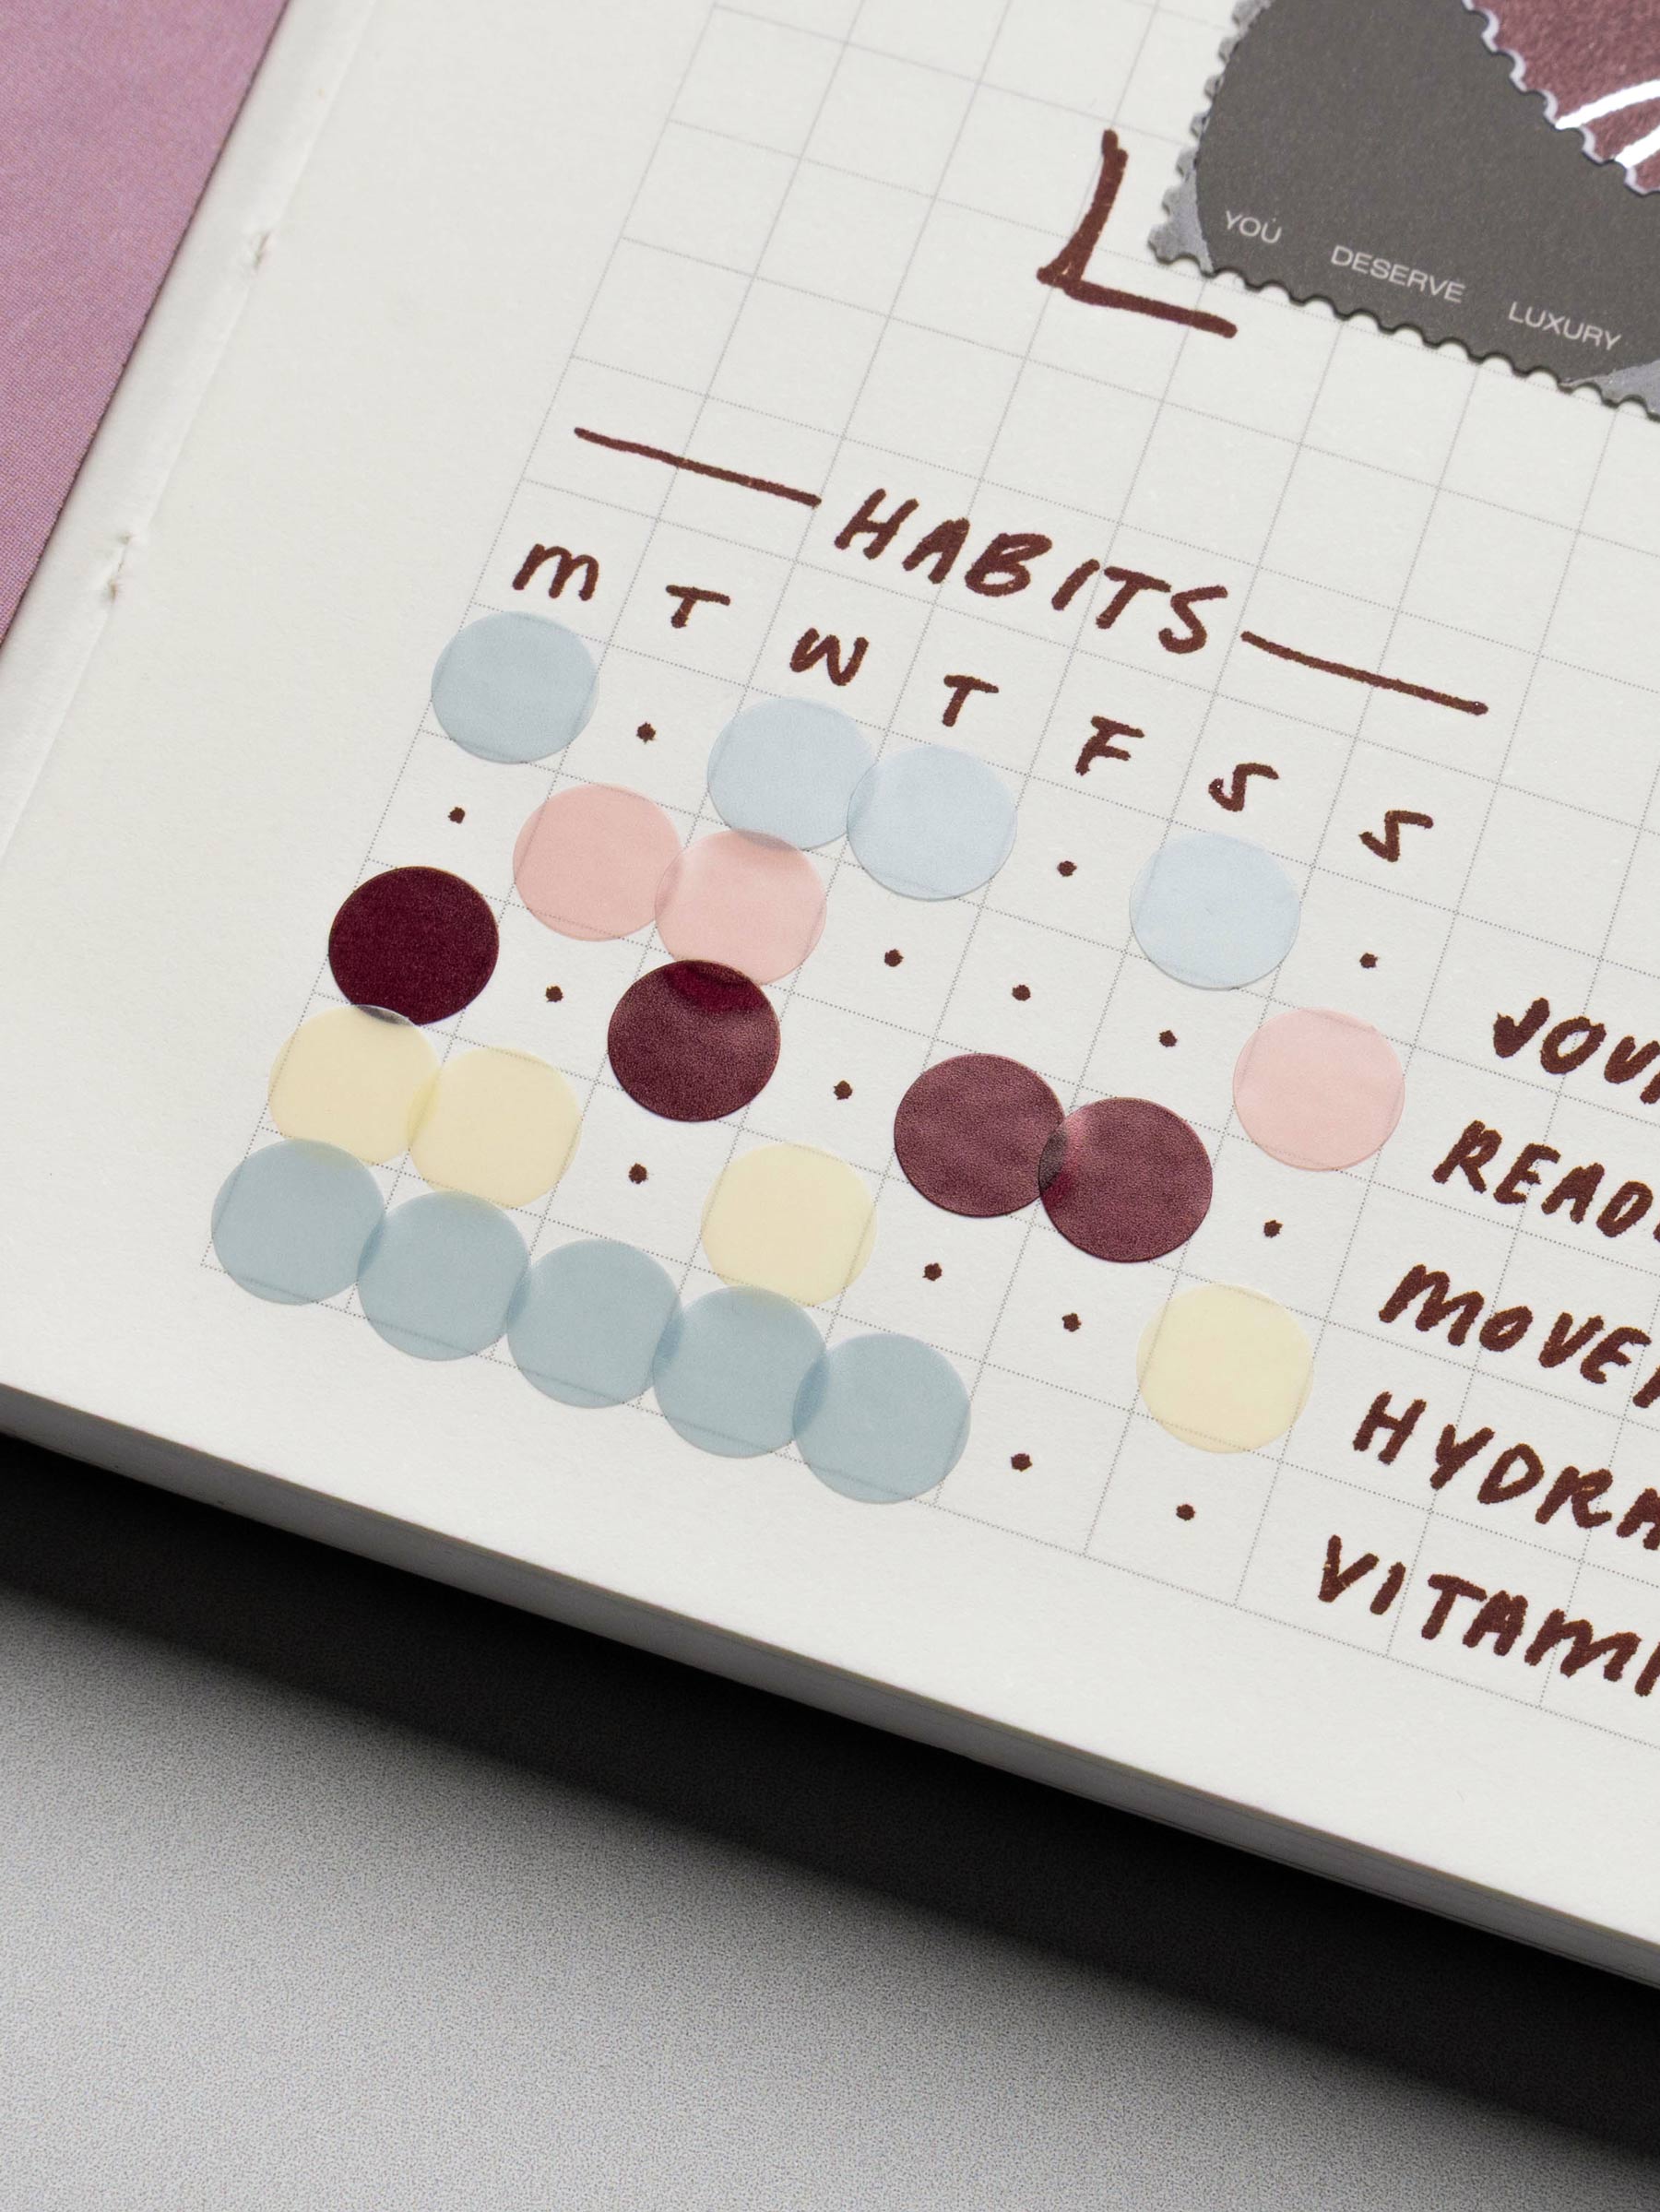 L
YOU DESERVE LUXURY
HABITS
M T W T F S S
JOU
READ
MOVE
HYDRA
VITAMI